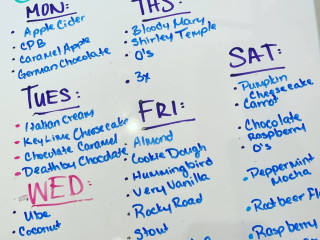 MON:
• Apple Cider
• CPB
• Caramel Apple
• German Chocolate
TUES:
• Italian Cream
• Key Lime Cheesecake
• Chocolate Caramel
• Death by Chocolate
WED:
• Ube
• Coconut
THS:
• Bloody Mary
• Shirley Temple
• O's
• 3x
FRI:
• Almond
• Cookie Dough
• Hummingbird
• Very Vanilla
• Rocky Road
• Stout
SAT:
• Pumpkin
Cheesecake
• Carrot
• Chocolate
Raspberry
• O's
• Peppermint
Mocha
• Root beer
• Raspberry